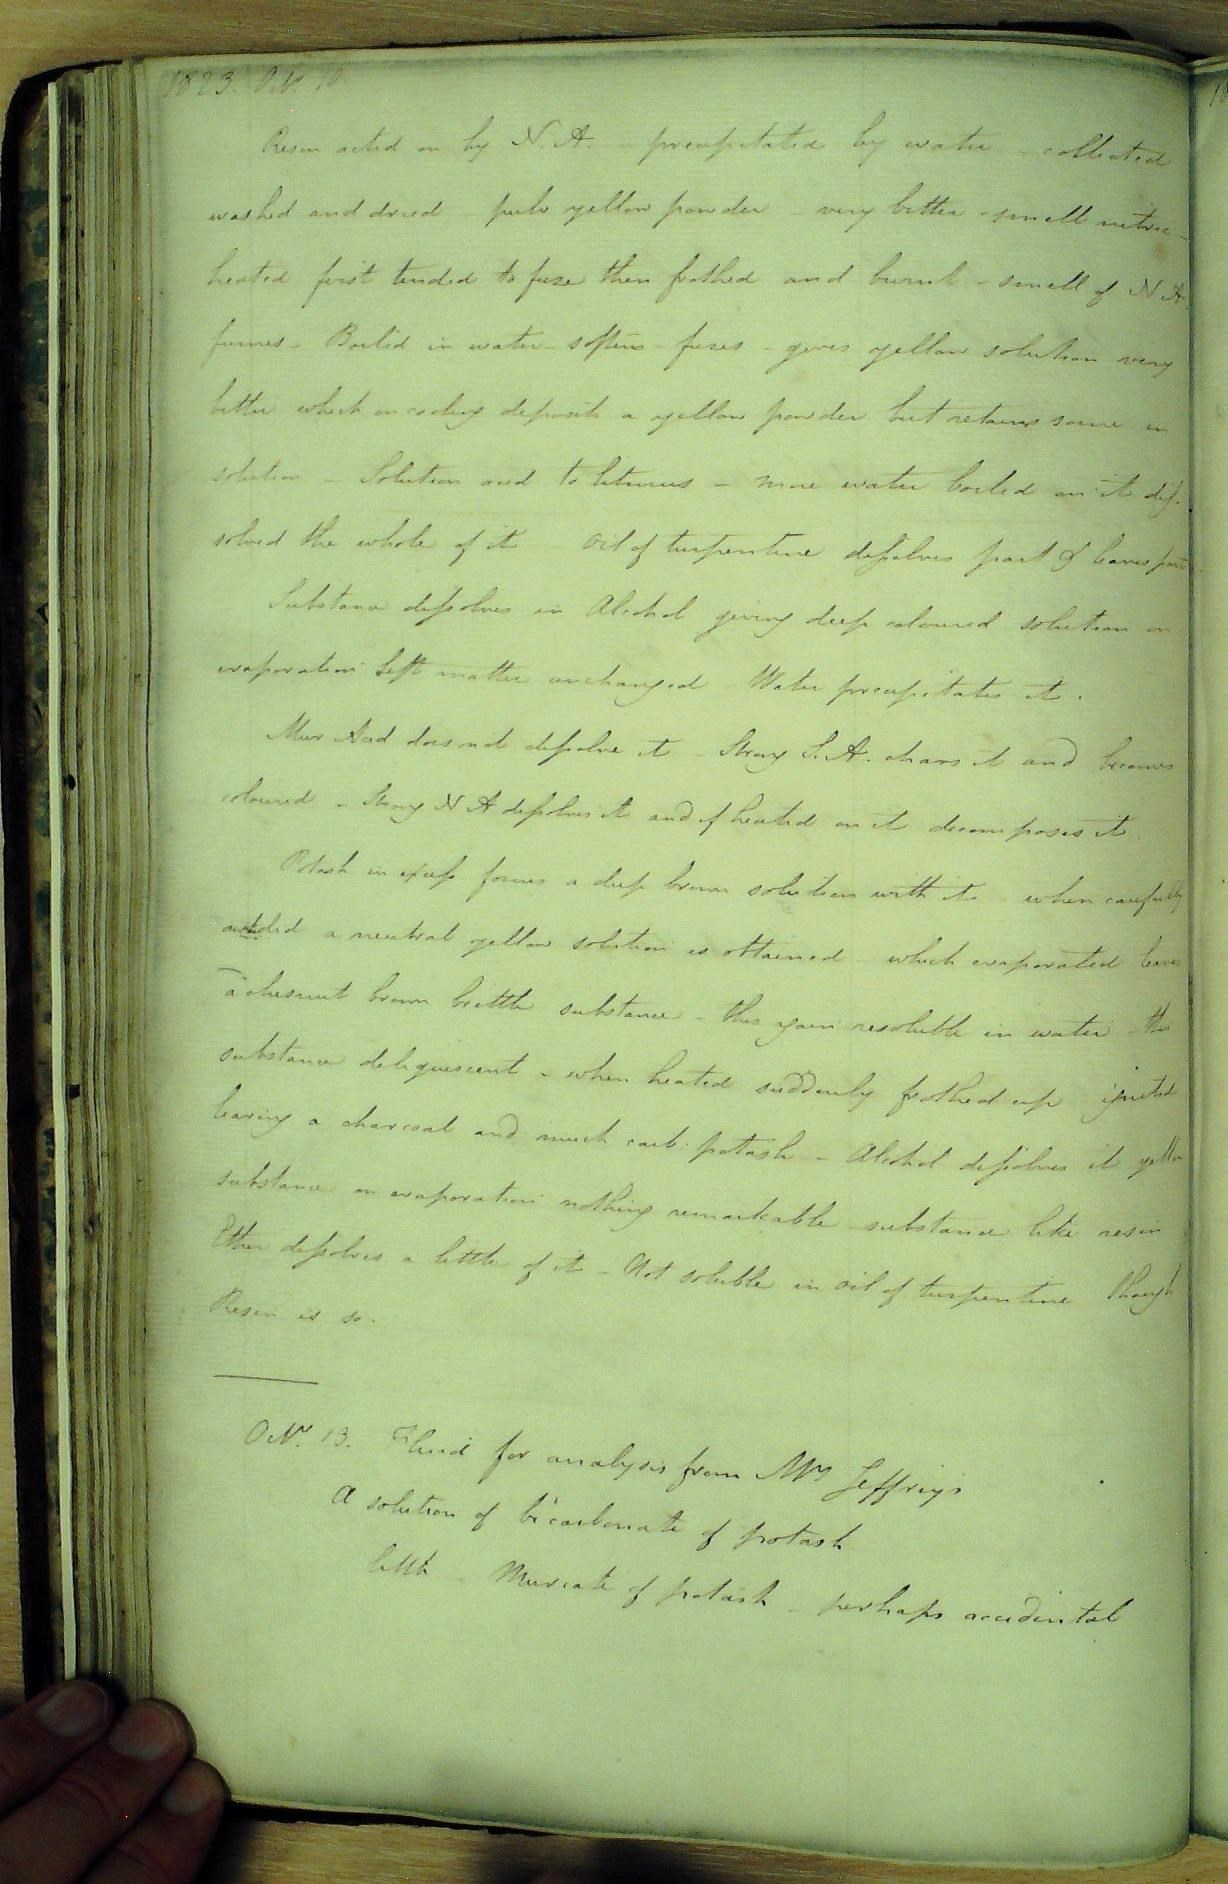 1823. Oct. 10.
Resin acted on by N. A. - precipitated by water - collected
washed and dried pulv yellow powder - very bitter - smell nitric -
heated first tended to fuse then frothed and burnt - smell of N A
fumes - Boiled in water - softens - fuses - gives yellow solution very
bitter which on cooling deposits a yellow powder but retains some in
solution - Solution acid to litmus - more water boiled on it dis-
solved the whole of it - Oil of turpentine dissolves part & leaves part
Substance dissolves in Alcohol giving deep coloured solution on
evaporation left matter unchanged - Water precipitates it.
Mur Acid does not dissolve it - Strong S. A. chars it and becomes
coloured - Strong N A dissolves it and if heated on it decomposes it
Potash in excess forms a deep brown solution with it when carefully
added a neutral yellow solution is obtained - which evaporated leaves
a chesnut brown brittle substance - this again resoluble in water - the
substance deliquescent - when heated suddenly frothed up ignited
leaving a charcoal and much carb. potash - Alcohol dissolves it yellow
substance on evaporation nothing remarkable substance like resin
Ether dissolves a little of it - Not soluble in oil of turpentine though
Resin is so.
Octr. 13. Fluid for analysis from Mrs Jeffrey's
A solution of bicarbonate of potash
little - Muriate of potash - perhaps accidental